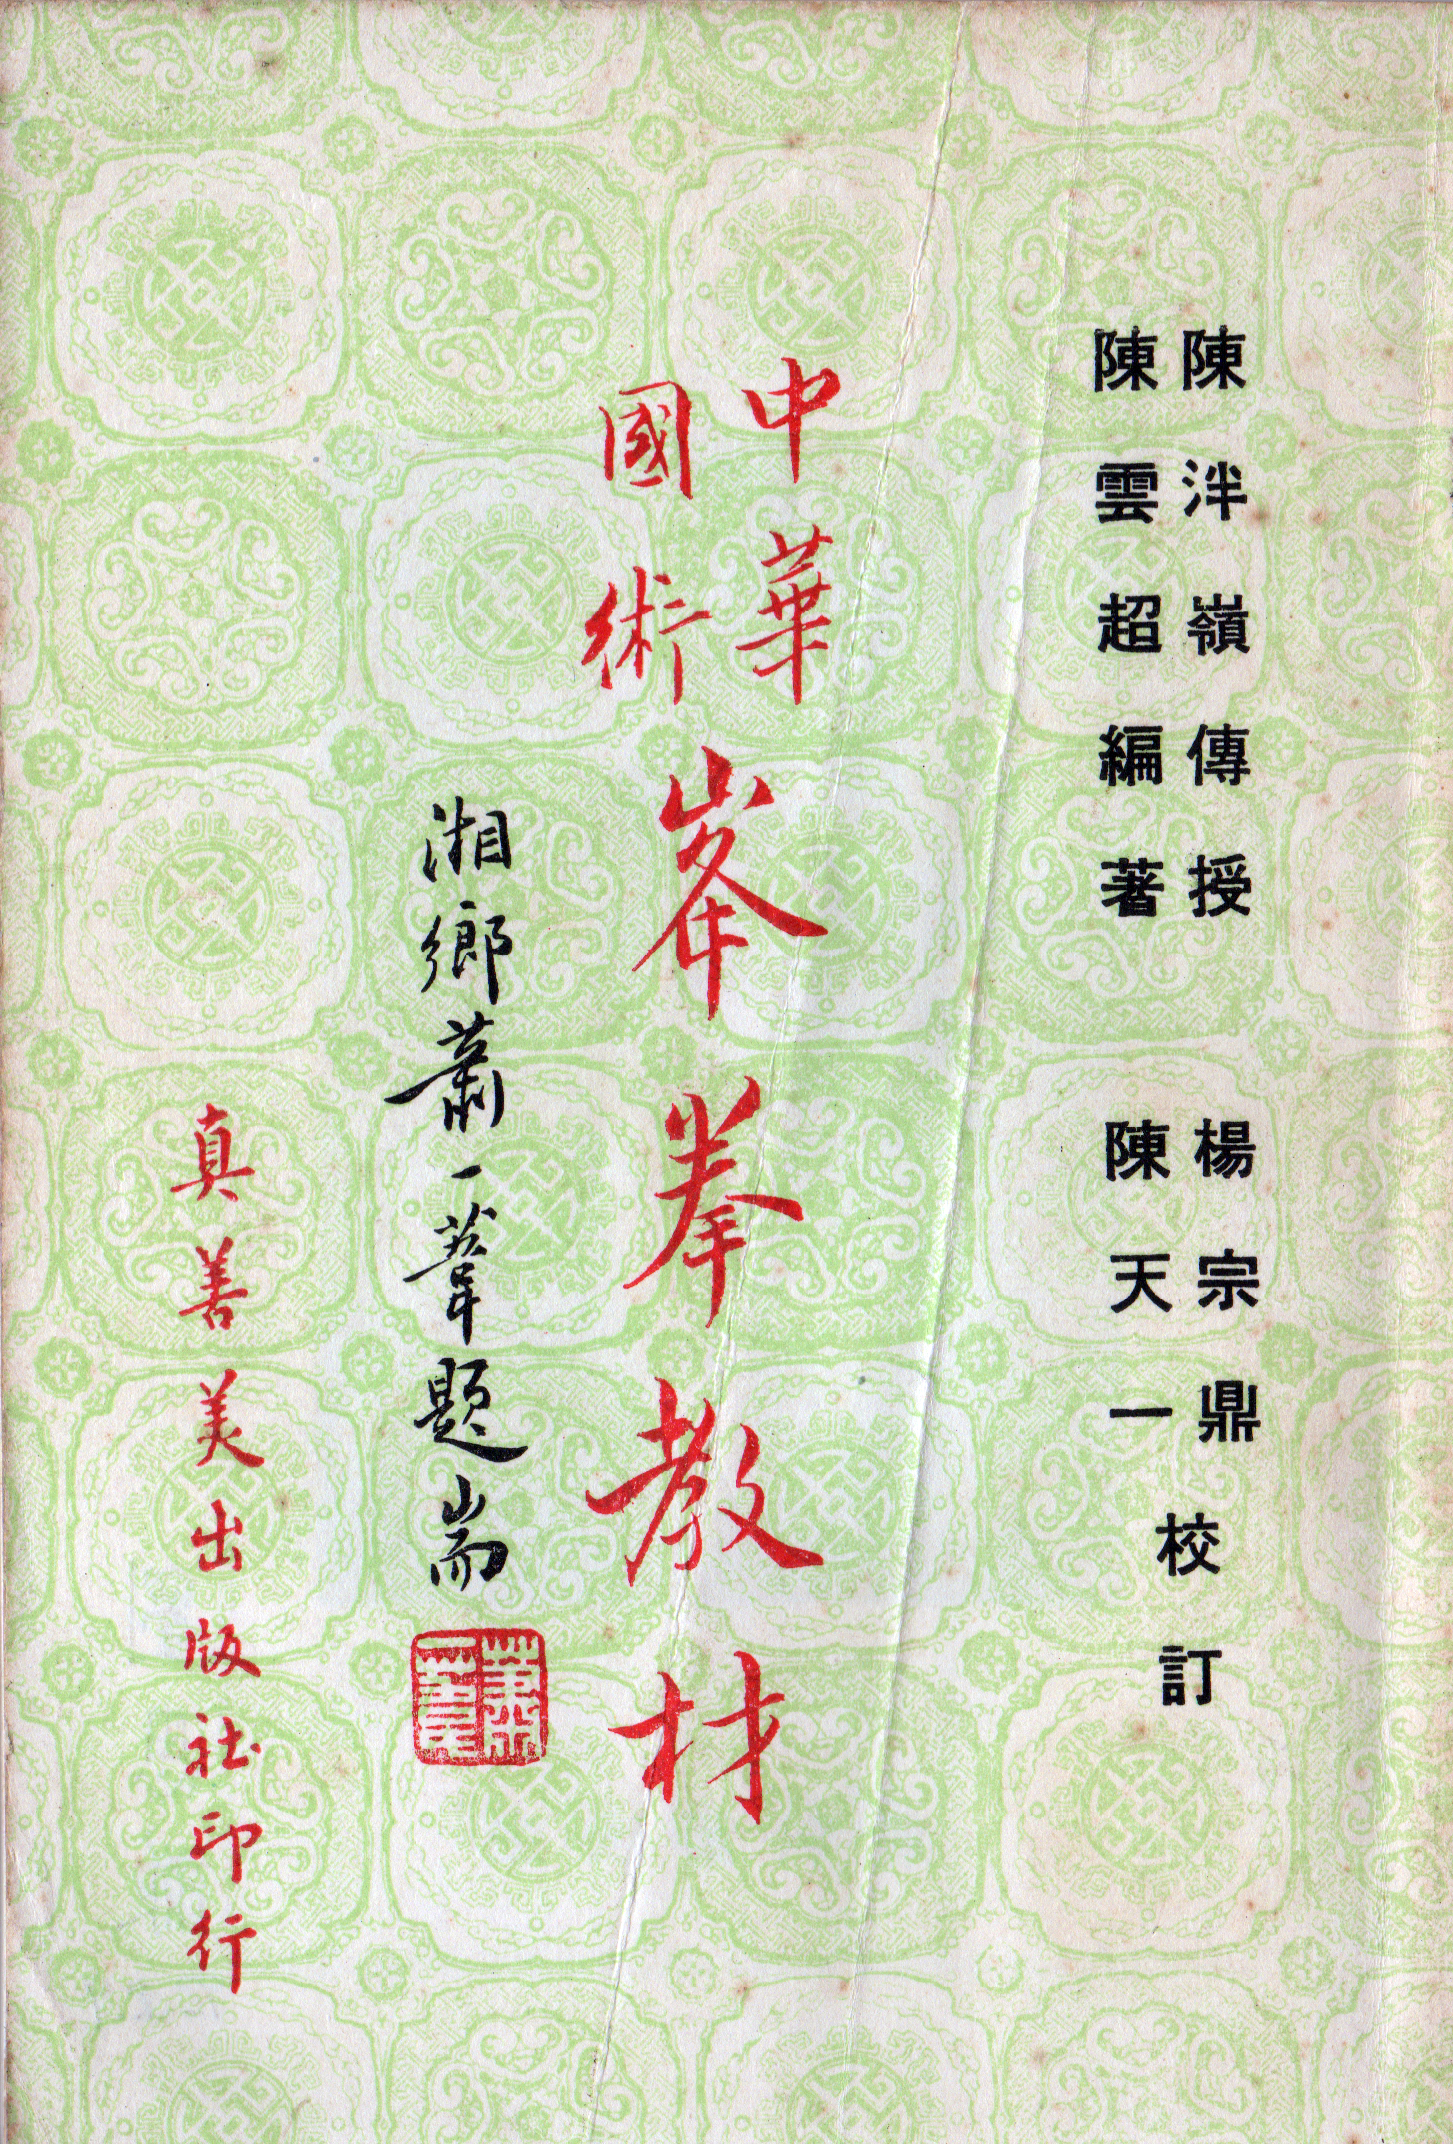 陳泮嶺傳授
陳雲超編著
楊宗鼎
陳天一
校訂
中華
國術
峯拳教材
湘鄉蕭一葦題耑
真善美出版社印行